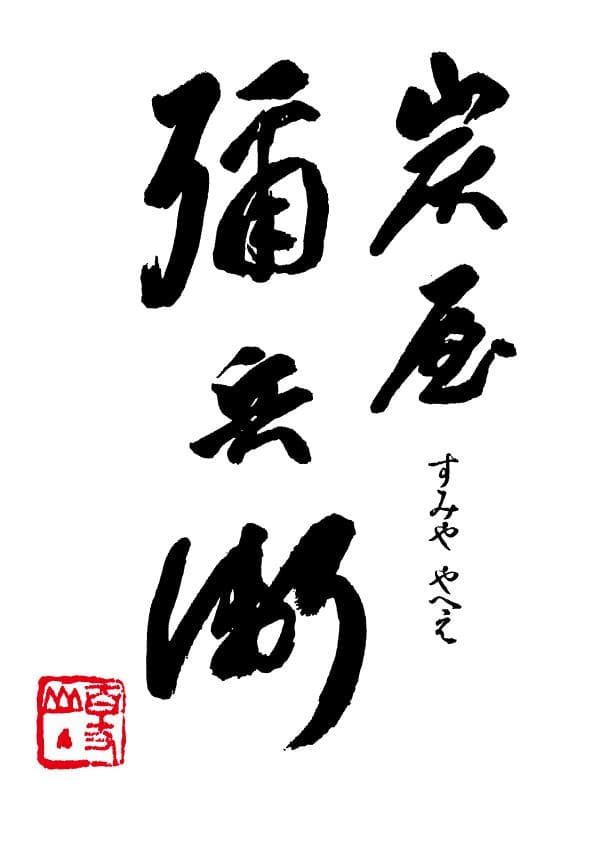 炭屋
すみや やへえ
彌兵衛